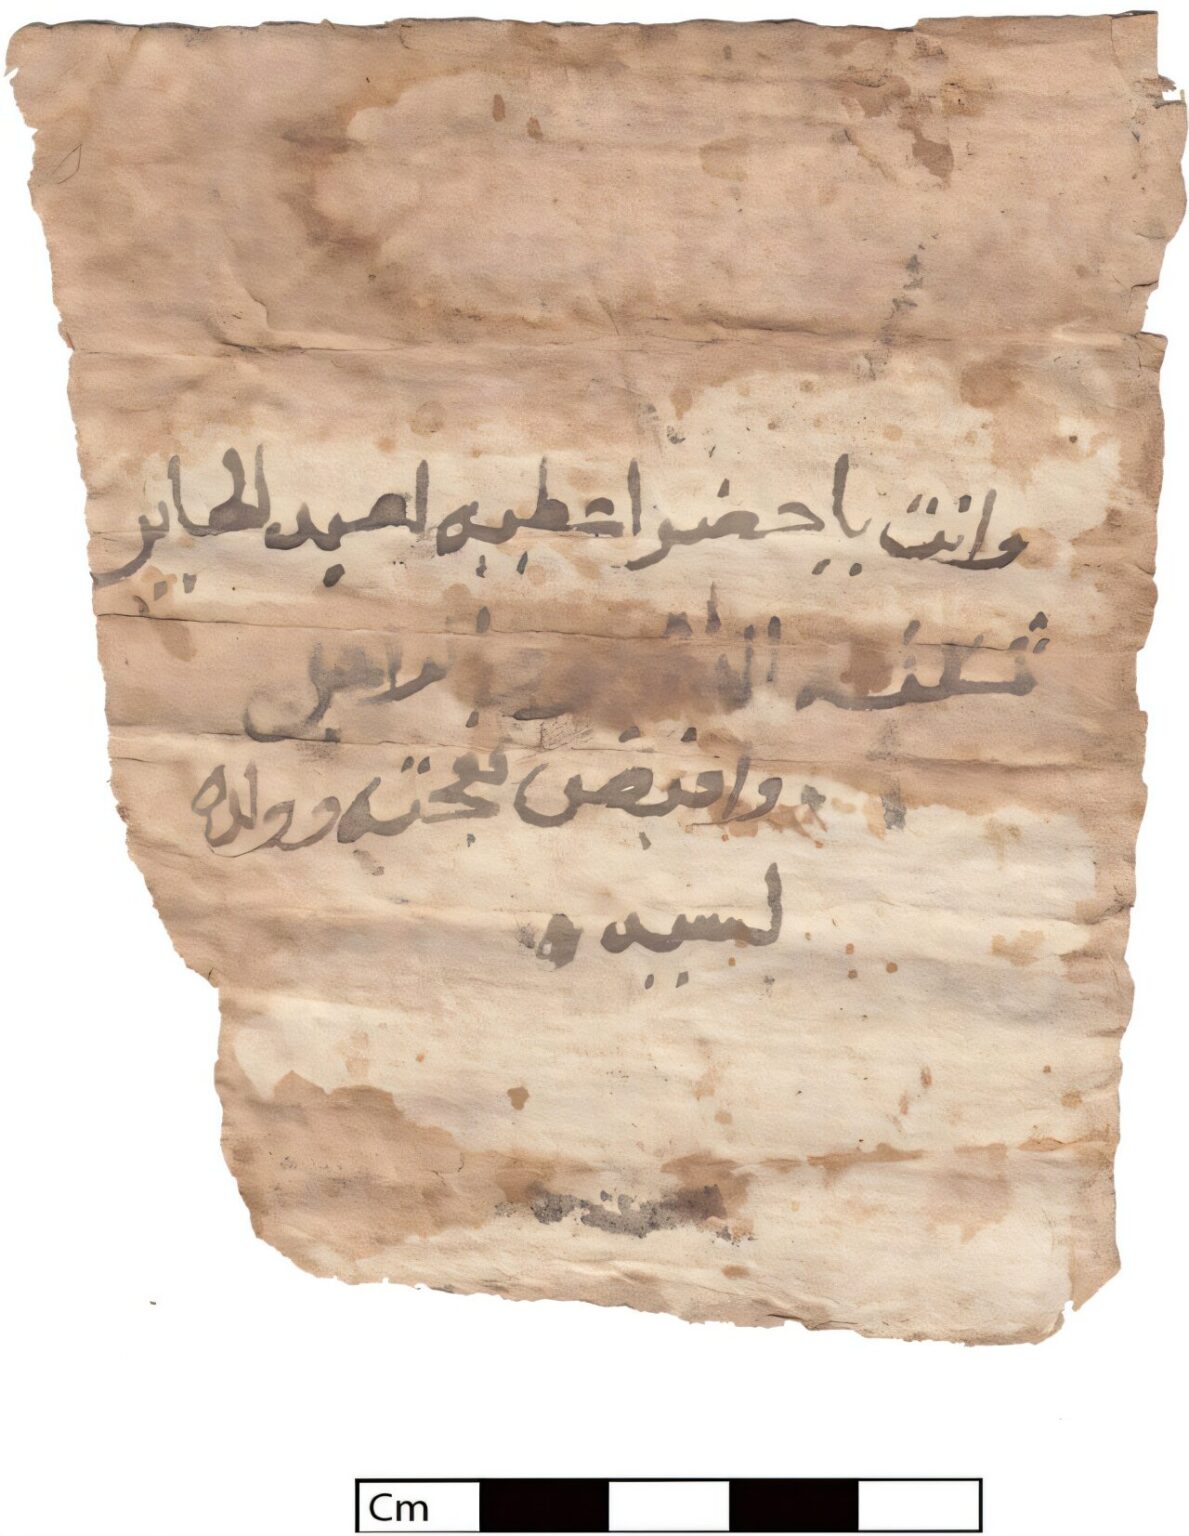 وانت ياحضر اعطيه لعبد الجابر
ثلثه الراجل
واقبض نعجته وولده
لسيده
Cm